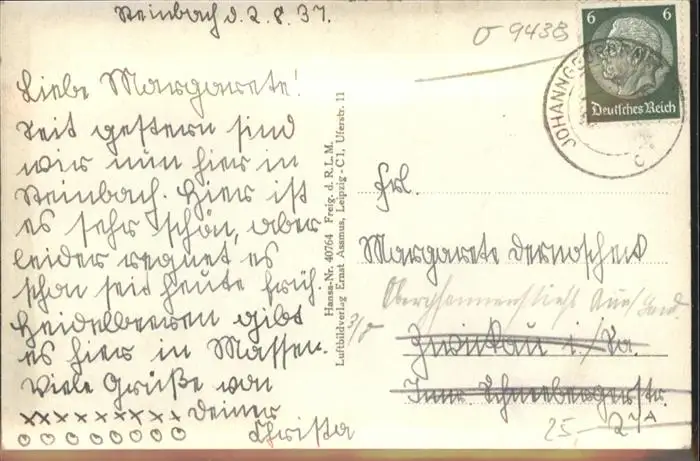 Steinbach d. 2. 8. 37.
Liebe Margarete!
Seit gestern sind
wir nun hier in
Steinbach. Hier ist
es sehr schön, aber
leider regnet es
schon seit heute früh.
Heidelbeeren gibt
es hier in Massen.
Viele Grüße von
xxxxxxxxx Deiner
oooooooo Christa
Hansa-Nr. 40764 Freig. d. R.L.M.
Luftbildverlag Ernst Assmus, Leipzig-C1, Uferstr. 11
σ 9438
6 6
Deutsches Reich
JOHANNGEORGENSTADT
c
Frl.
Margarete Dernoscheck
Zwickau i./Sa.
Schneebergerstr.
25.-